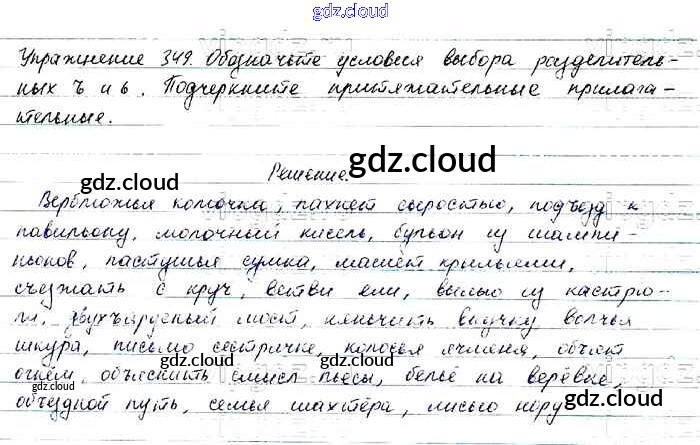 gdz.cloud
Упражнение 349. Обозначьте условия выбора разделитель-
ных ъ и ь. Подчеркните притяжательные прилага-
тельные.
gdz.cloud
Решение.
gdz.cloud
Верблюжья колючка, пахнет сыростью, подъезд к
павильону, молочный кисель, бульон из шампи-
ньонов, пастушья сумка, машет крыльями,
съезжать с круч, ветви ели, вылью из кастрю-
ли, двухъярусный мост, нянчить внучку волчья
шкура, письмо сестричке, колосья ячменя, объят
gdz.cloud
gdz.cloud
огнём, объяснить смысл пьесы, бельё на верёвке,
gdz.cloud
объездной путь, семья шахтёра, лисью нору
gdz.cloud